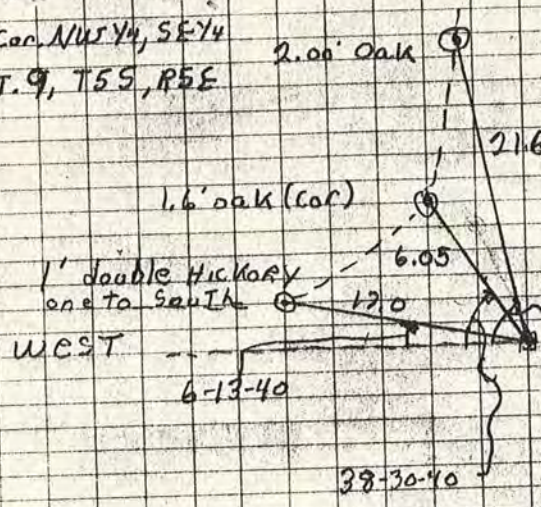 Cor. NW¼, SE¼
T. 9, T5S, R5E
2.00' Oak
21.6
1.6' oak (Cor)
6.05
1' double Hickory
one to South
17.0
WEST
6-13-40
38-30-40